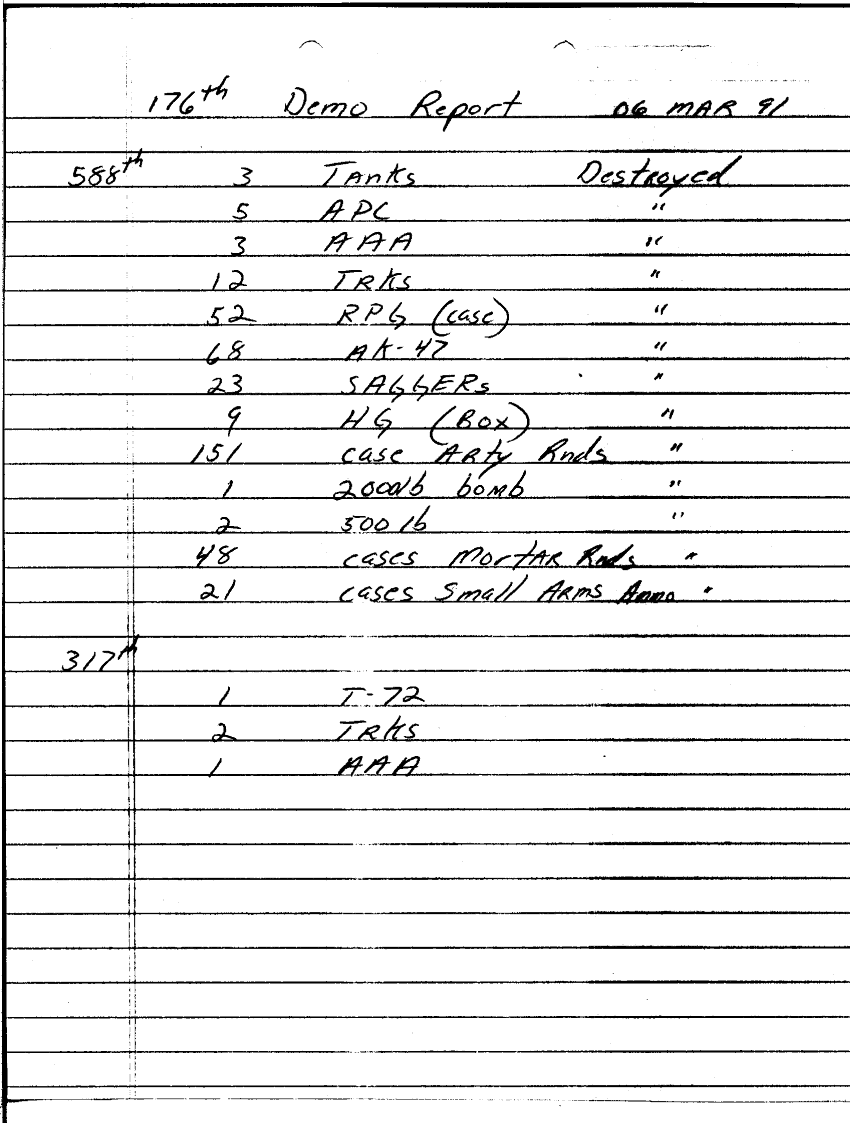 176th Demo Report 06 MAR 91
588th 3 Tanks Destroyed
5 APC "
3 AAA "
12 TRKs "
52 RPG (case) "
68 AK-47 "
23 SAGGERs "
9 HG (Box) "
151 case ARty Rnds "
1 2000lb bomb "
2 500 lb "
48 cases MortAR Rnds "
21 cases Small ARms Ammo "
317th
1 T-72
2 TRKs
1 AAA